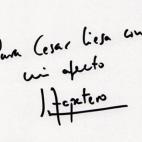 Para Cesar Liesa con
mi afecto
J. Zapatero